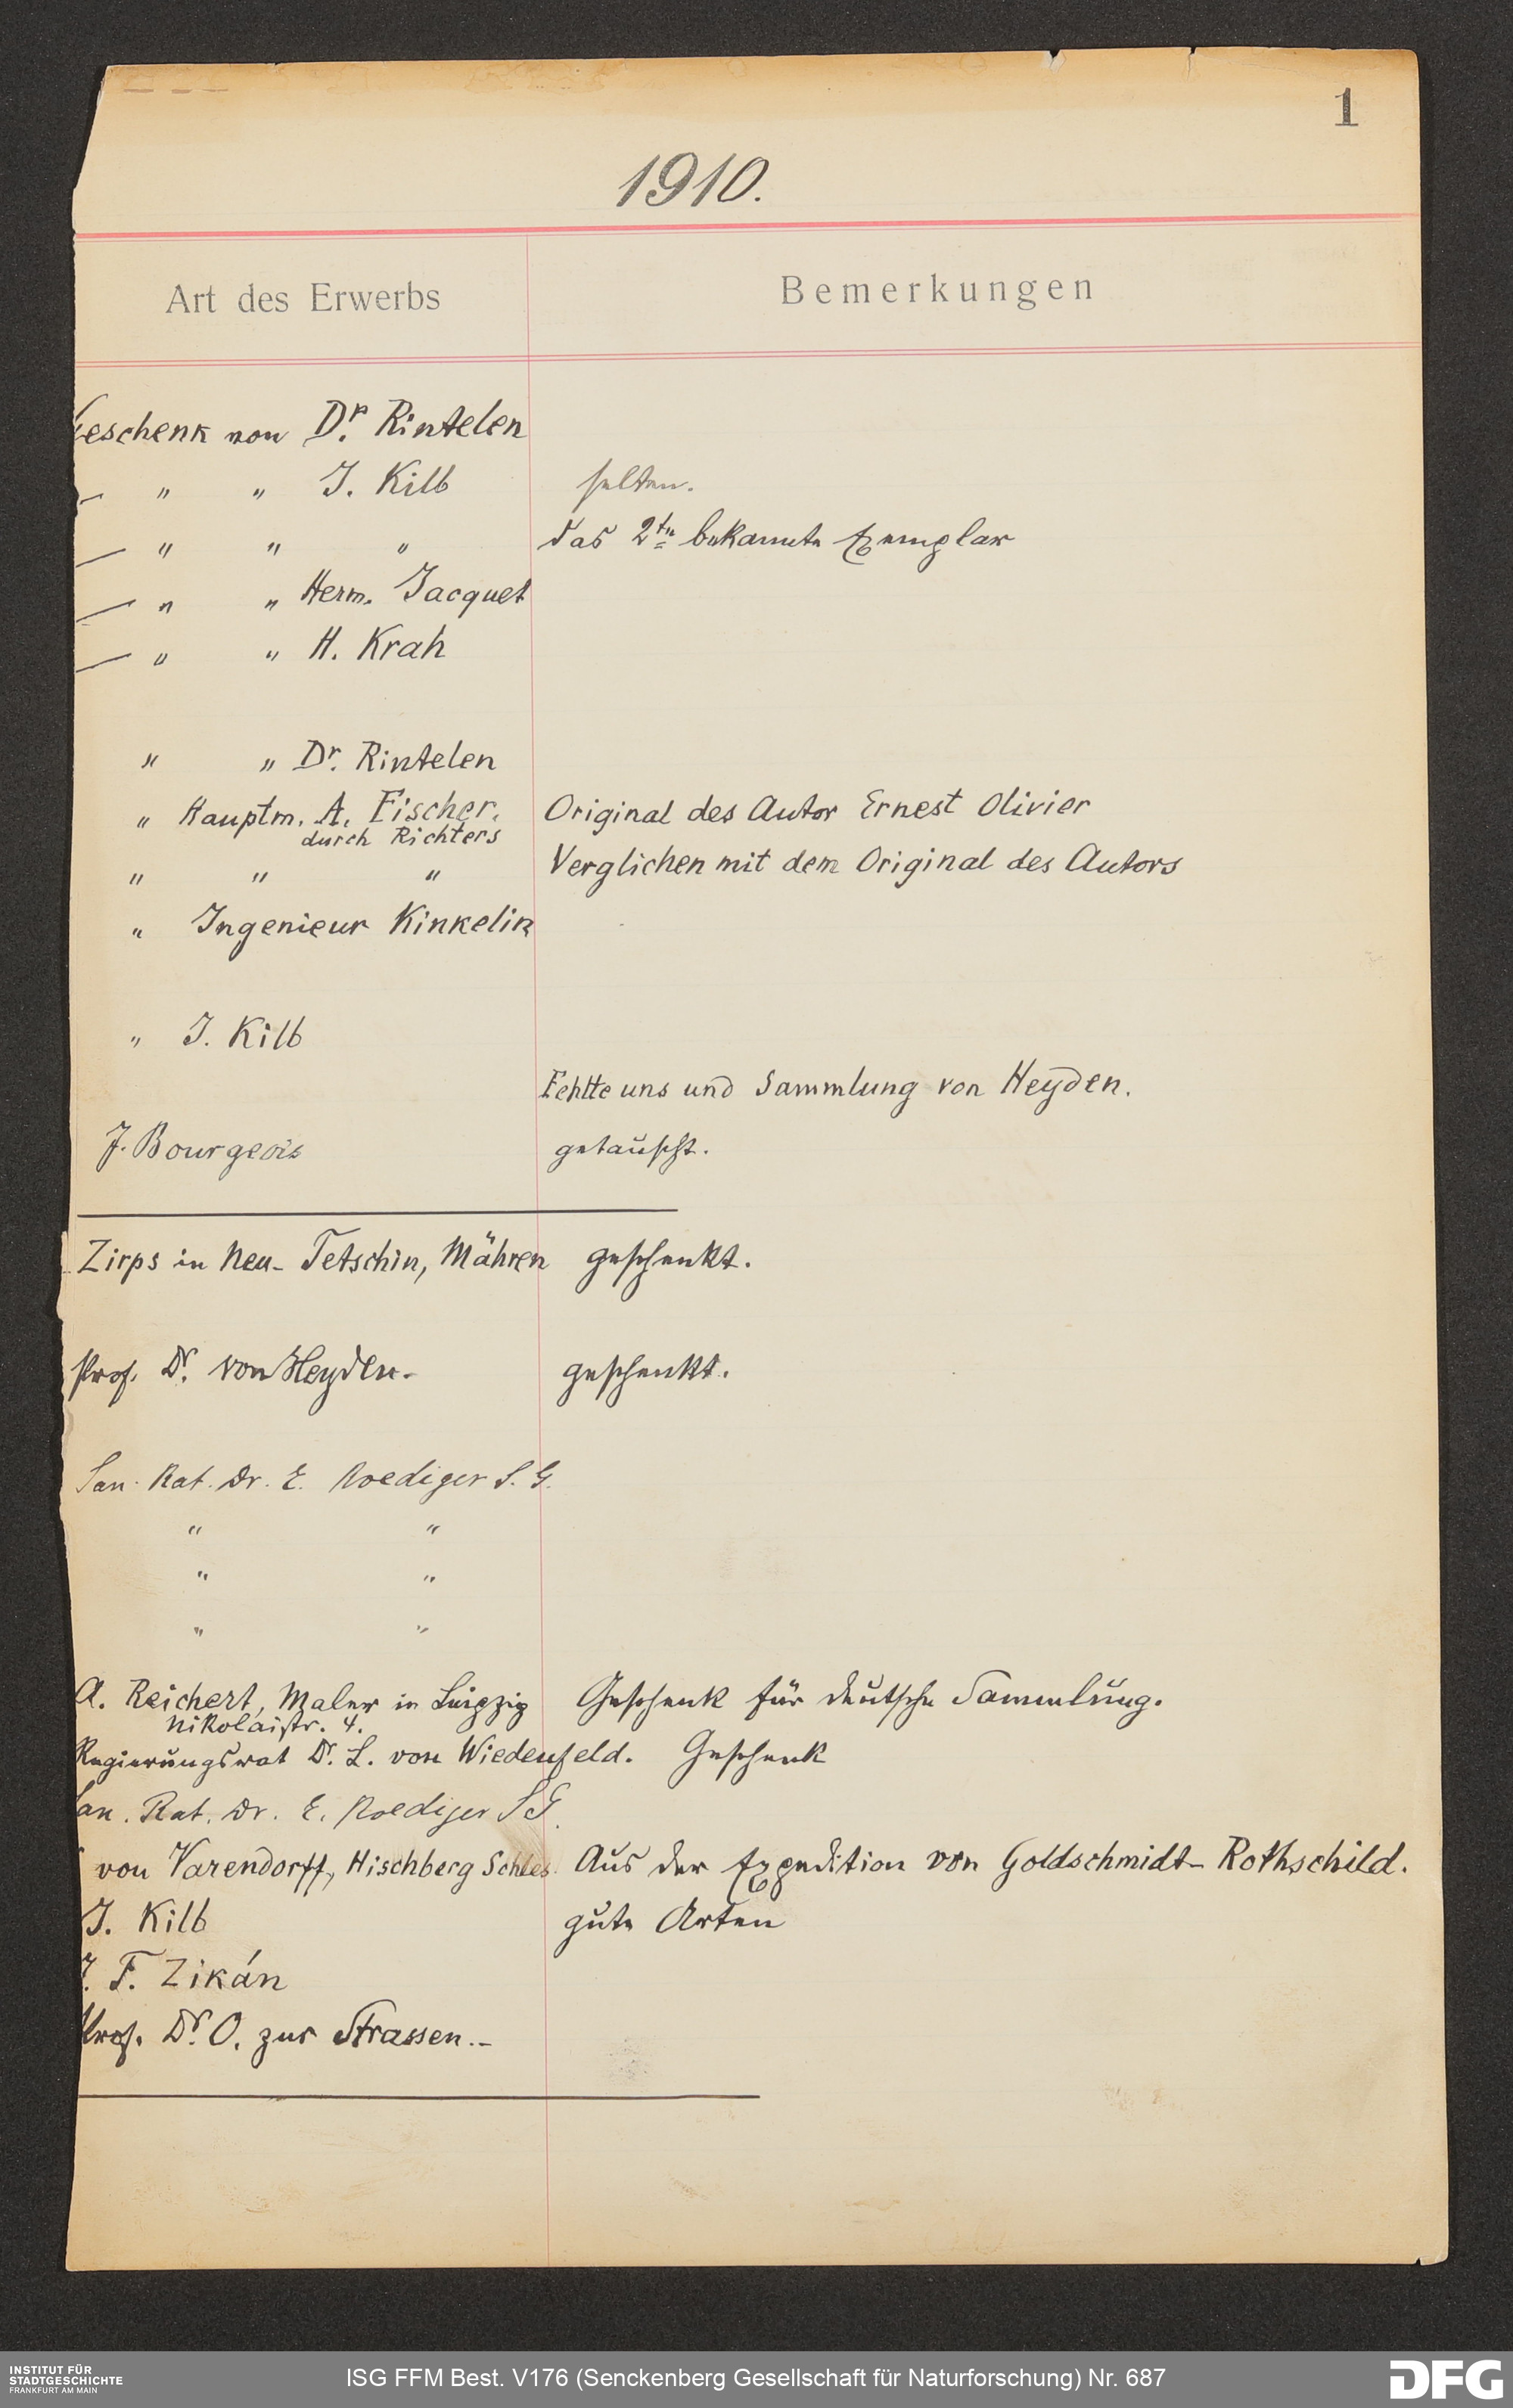 1
1910.
Art des Erwerbs Bemerkungen
Geschenk von Dr. Rintelen
— " " J. Kilb selten.
— " " " das 2te bekannte Exemplar
— " " Herm. Jacquet
— " " H. Krah
" " Dr. Rintelen
" Hauptm. A. Fischer. Original des Autor Ernest Olivier
durch Richters
" " " Verglichen mit dem Original des Autors
" Ingenieur Kinkelin
" J. Kilb
Fehlte uns und Sammlung von Heyden.
J. Bourgeois getauscht.
Zirps in Neu-Tetschin, Mähren geschenkt.
Prof. Dr. von Heyden.- geschenkt.
San. Rat. Dr. E. Roediger S. G.
" "
" "
" "
A. Reichert, Maler in Leipzig Geschenk für deutsche Sammlung.
Nikolaistr. 4.
Regierungsrat Dr. L. von Wiedenfeld. Geschenk
San. Rat. Dr. E. Roediger S G.
von Varendorff, Hischberg Schles. Aus der Expedition von Goldschmidt-Rothschild.
J. Kilb gute Arten
J. F. Zikán
Prof. Dr. O. zur Strassen.-
INSTITUT FÜR
STADTGESCHICHTE
FRANKFURT AM MAIN
ISG FFM Best. V176 (Senckenberg Gesellschaft für Naturforschung) Nr. 687
DFG